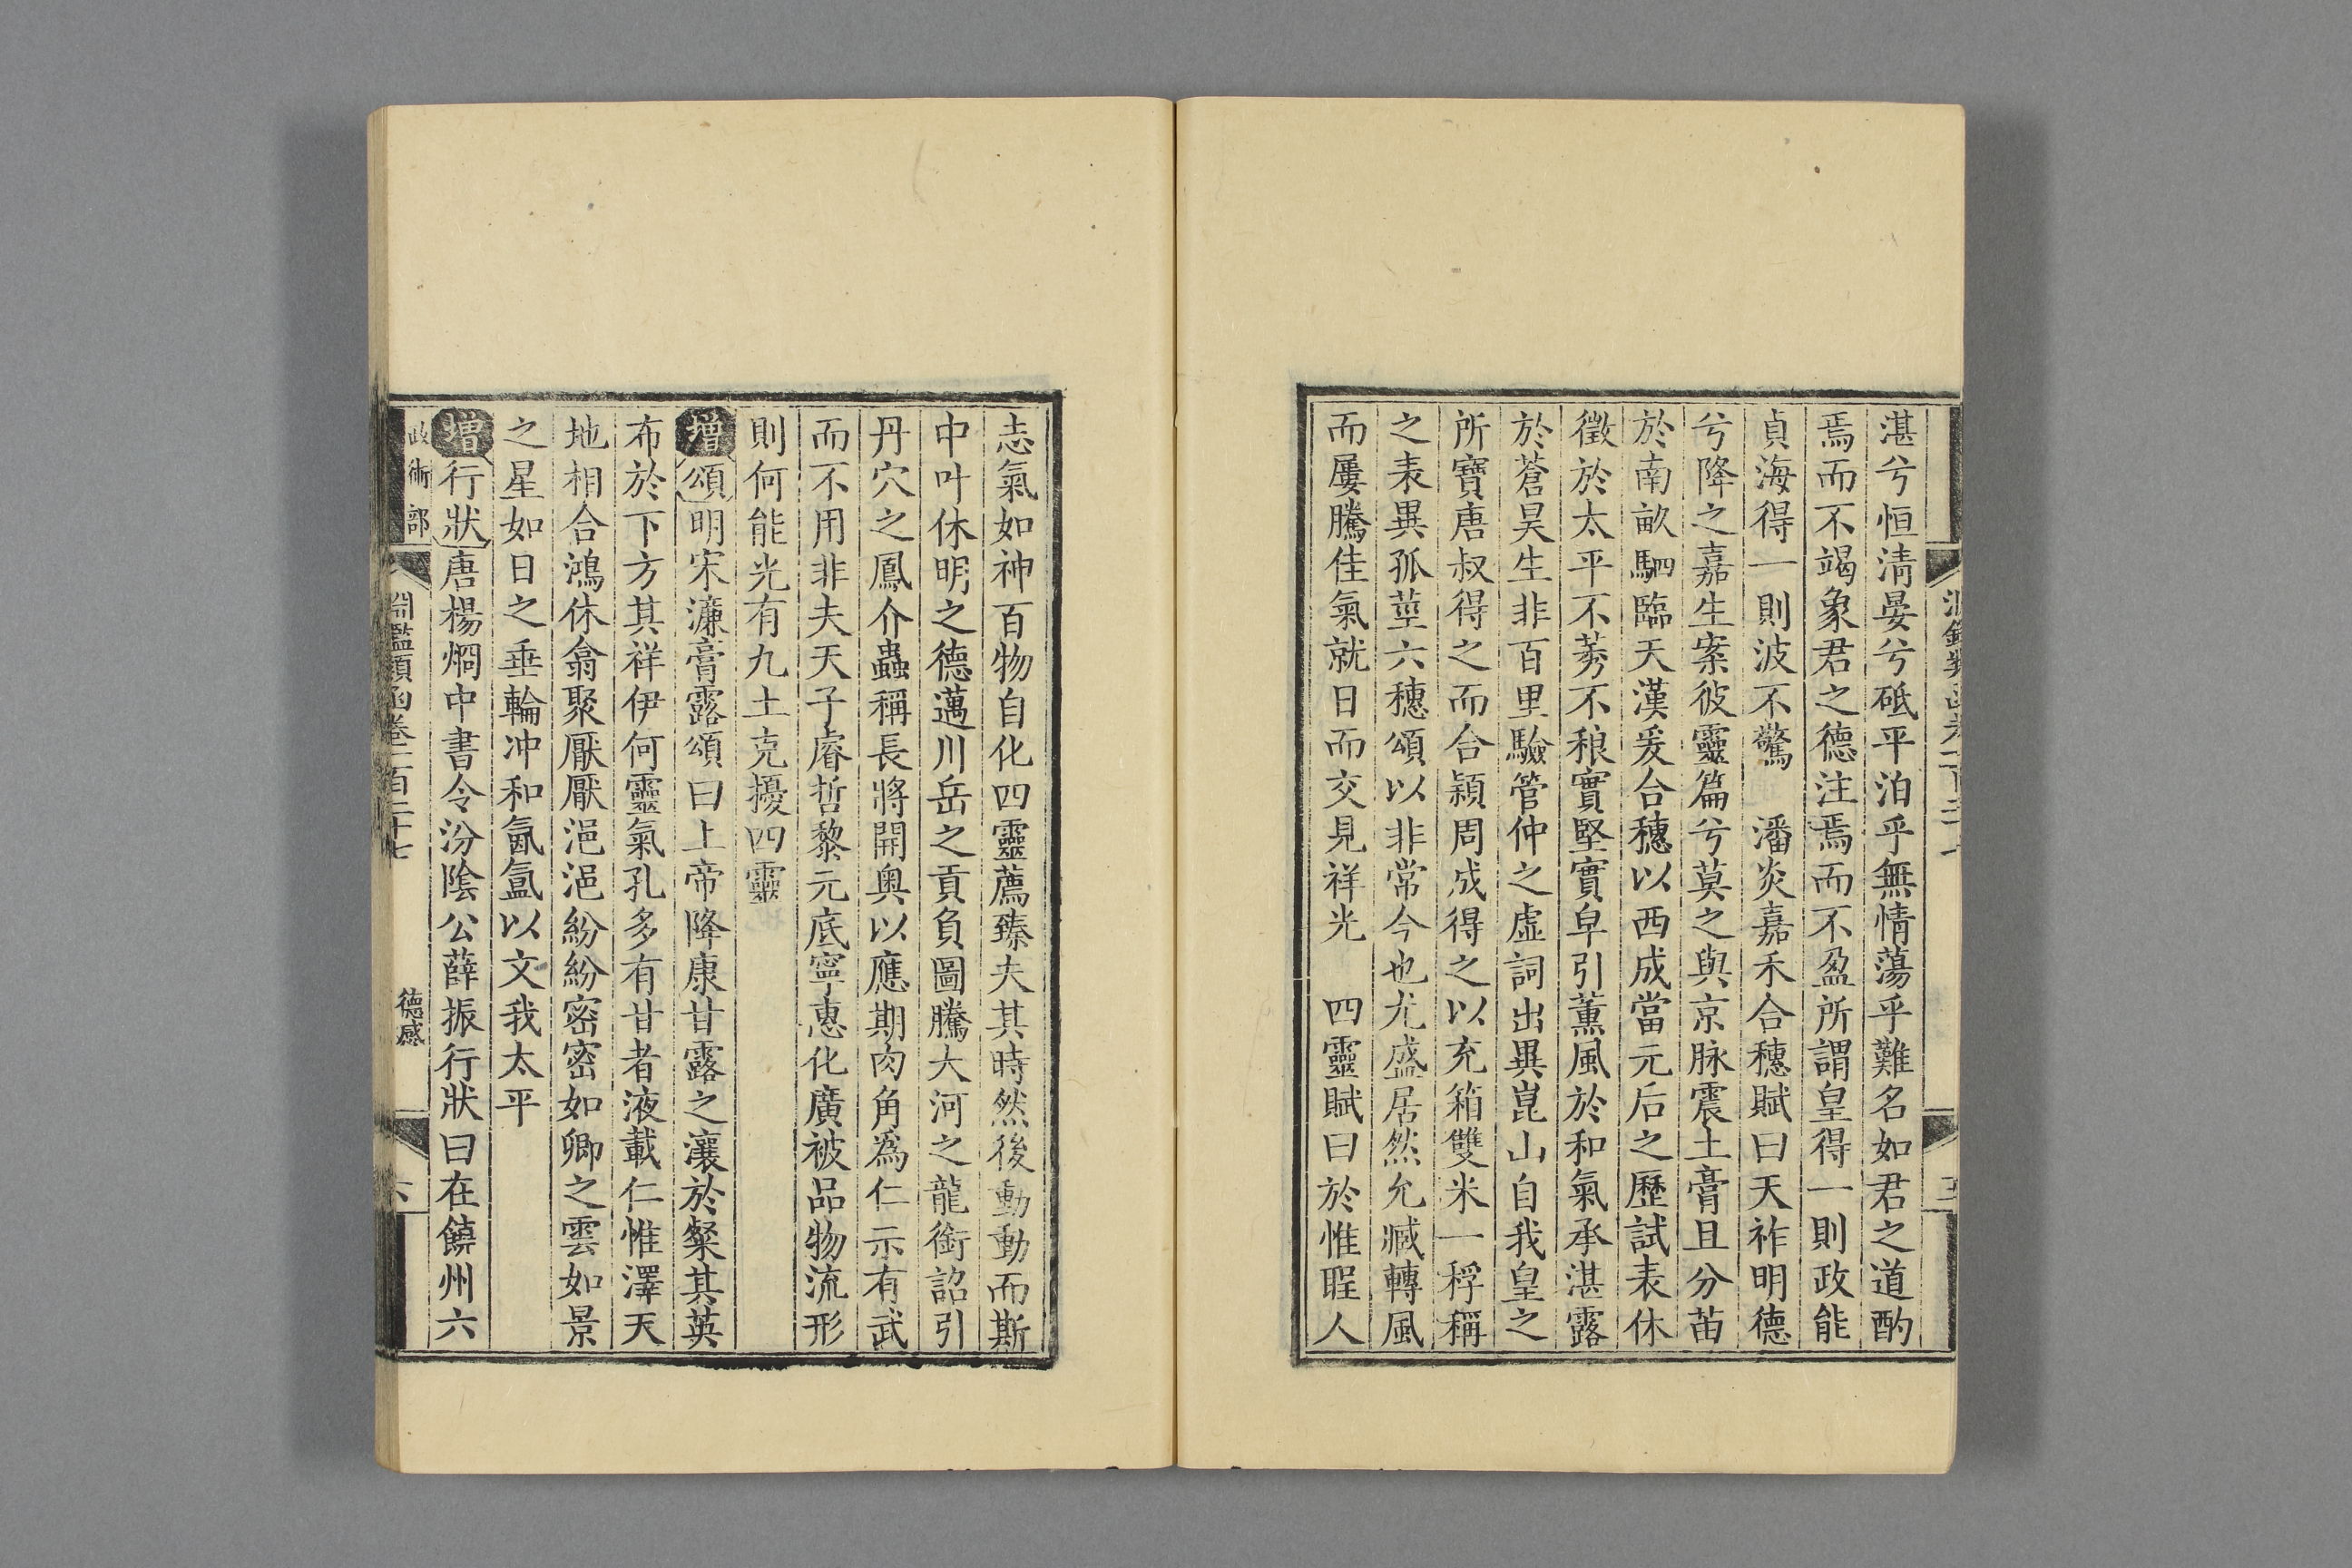 湛兮恒清晏兮砥平泊乎無情蕩乎難名如君之道酌
焉而不竭象君之德注焉而不盈所謂皇得一則政能
貞海得一則波不驚　潘炎嘉禾合穗賦曰天祚明德
兮降之嘉生案彼靈篇兮莫之與京脉震土膏且分苗
於南畝駟臨天漢爰合穗以西成當元后之歷試表休
徵於太平不莠不稂實堅實皁引薰風於和氣承湛露
於蒼昊生非百里驗管仲之虛詞出異崑山自我皇之
所寶唐叔得之而合穎周成得之以充箱雙米一稃稱
之表異孤莖六穗頌以非常今也尤盛居然允臧轉風
而屢騰佳氣就日而交見祥光　四靈賦曰於惟聖人
志氣如神百物自化四靈薦臻夫其時然後動動而斯
中叶休明之德邁川岳之貢負圖騰大河之龍銜詔引
丹穴之鳳介蟲稱長將開奧以應期肉角爲仁示有武
而不用非夫天子睿哲黎元底寧惠化廣被品物流形
則何能光有九土克擾四靈
增頌明宋濂膏露頌曰上帝降康甘露之瀼於粲其英
布於下方其祥伊何靈氣孔多有甘者液載仁惟澤天
地相合鴻休翕聚厭厭浥浥紛紛密密如卿之雲如景
之星如日之垂輪冲和氤氳以文我太平
增行狀唐楊烱中書令汾陰公薛振行狀曰在饒州六
政術部
淵鑑類函卷二百二十七
德感
六